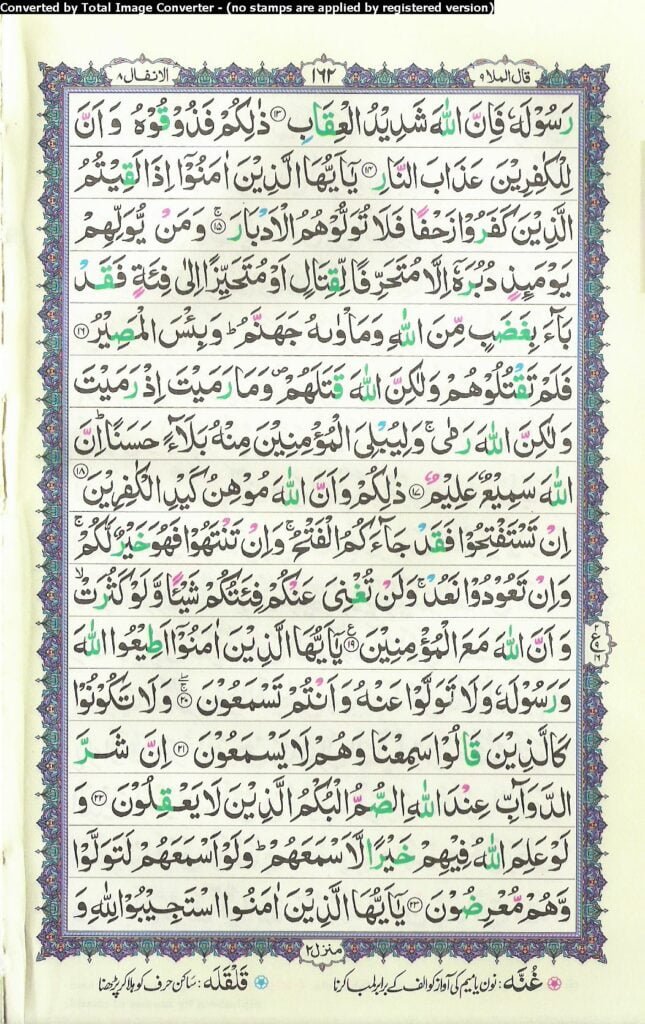 Converted by Total Image Converter - (no stamps are applied by registered version)
قال الملا ٩
١٦٢
الانفال ٨
رَسُوْلَهٗ فَاِنَّ اللّٰهَ شَدِيْدُ الْعِقَابِ ۝١٣ ذٰلِكُمْ فَذُوْقُوْهُ وَاَنَّ
لِلْكٰفِرِيْنَ عَذَابَ النَّارِ ۝١٤ يٰۤاَيُّهَا الَّذِيْنَ اٰمَنُوْۤا اِذَا لَقِيْتُمُ
الَّذِيْنَ كَفَرُوْا زَحْفًا فَلَا تُوَلُّوْهُمُ الْاَدْبَارَ ۝١٥ۚ وَمَنْ يُّوَلِّهِمْ
يَوْمَىِٕذٍ دُبُرَهٗۤ اِلَّا مُتَحَرِّفًا لِّقِتَالٍ اَوْ مُتَحَيِّزًا اِلٰى فِئَةٍ فَقَدْ
بَآءَ بِغَضَبٍ مِّنَ اللّٰهِ وَمَاْوٰىهُ جَهَنَّمُ ؕ وَبِئْسَ الْمَصِيْرُ ۝١٦
فَلَمْ تَقْتُلُوْهُمْ وَلٰكِنَّ اللّٰهَ قَتَلَهُمْ ۪ وَمَا رَمَيْتَ اِذْ رَمَيْتَ
وَلٰكِنَّ اللّٰهَ رَمٰى ۚ وَلِيُبْلِىَ الْمُؤْمِنِيْنَ مِنْهُ بَلَآءً حَسَنًا ؕ اِنَّ
اللّٰهَ سَمِيْعٌ عَلِيْمٌ ۝١٧ ذٰلِكُمْ وَاَنَّ اللّٰهَ مُوْهِنُ كَيْدِ الْكٰفِرِيْنَ ۝١٨
اِنْ تَسْتَفْتِحُوْا فَقَدْ جَآءَكُمُ الْفَتْحُ ۚ وَاِنْ تَنْتَهُوْا فَهُوَ خَيْرٌ لَّكُمْ ۚ
وَاِنْ تَعُوْدُوْا نَعُدْ ۚ وَلَنْ تُغْنِىَ عَنْكُمْ فِئَتُكُمْ شَيْـًٔا وَّلَوْ كَثُرَتْ ۙ
وَاَنَّ اللّٰهَ مَعَ الْمُؤْمِنِيْنَ ۝١٩ع يٰۤاَيُّهَا الَّذِيْنَ اٰمَنُوْۤا اَطِيْعُوا اللّٰهَ
وَرَسُوْلَهٗ وَلَا تَوَلَّوْا عَنْهُ وَاَنْتُمْ تَسْمَعُوْنَ ۝٢٠ وَلَا تَكُوْنُوْا
كَالَّذِيْنَ قَالُوْا سَمِعْنَا وَهُمْ لَا يَسْمَعُوْنَ ۝٢١ اِنَّ شَرَّ
الدَّوَآبِّ عِنْدَ اللّٰهِ الصُّمُّ الْبُكْمُ الَّذِيْنَ لَا يَعْقِلُوْنَ ۝٢٢ وَ
لَوْ عَلِمَ اللّٰهُ فِيْهِمْ خَيْرًا لَّاَسْمَعَهُمْ ؕ وَلَوْ اَسْمَعَهُمْ لَتَوَلَّوْا
وَّهُمْ مُّعْرِضُوْنَ ۝٢٣ يٰۤاَيُّهَا الَّذِيْنَ اٰمَنُوا اسْتَجِيْبُوْا لِلّٰهِ وَ
منزل ٢
غُنَّه : نون یا میم کی آواز کو الف کے برابر لمبا کرنا
قَلْقَلَه : ساکن حرف کو ہلا کر پڑھنا